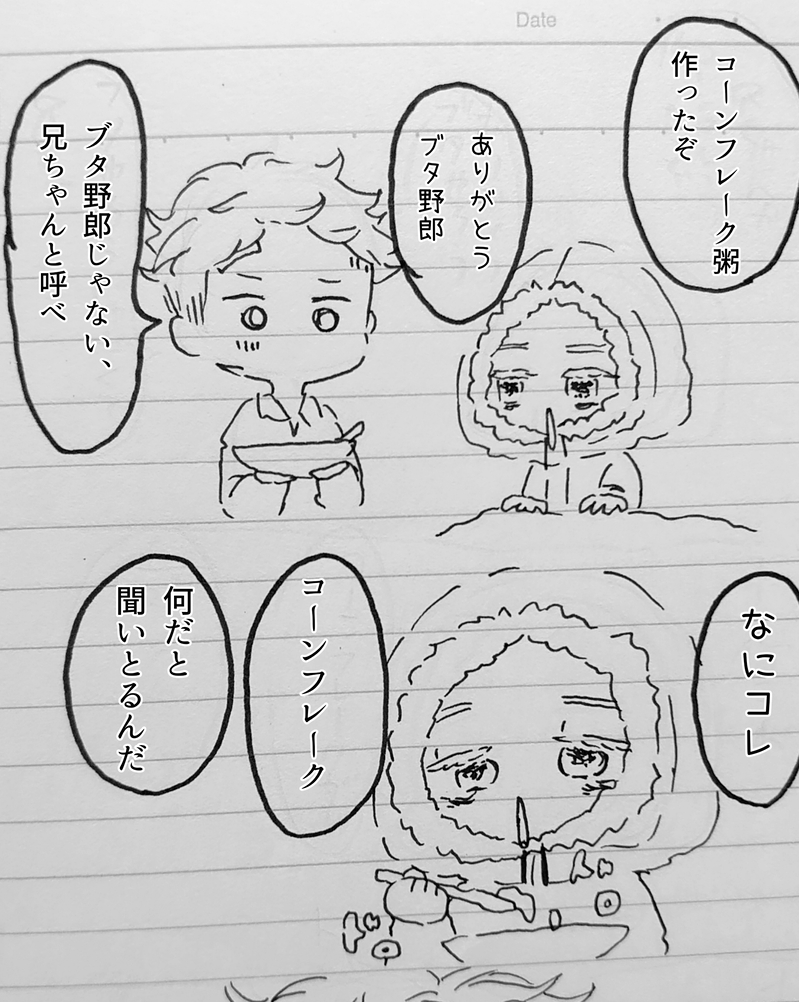 Date
コーンフレーク粥
作ったぞ
ありがとう
ブタ野郎
ブタ野郎じゃない、
兄ちゃんと呼べ
なにコレ
コーンフレーク
何だと
聞いとるんだ
ドロ
ドロ